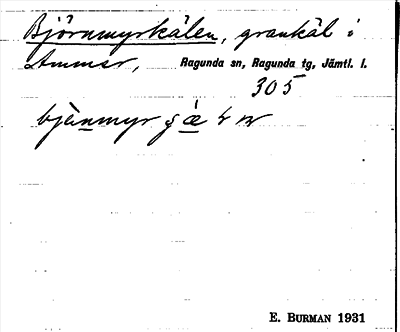 Björnmyrkälen, grankäl i
Ammer, Ragunda sn, Ragunda tg, Jämtl. l.
305
E. BURMAN 1931